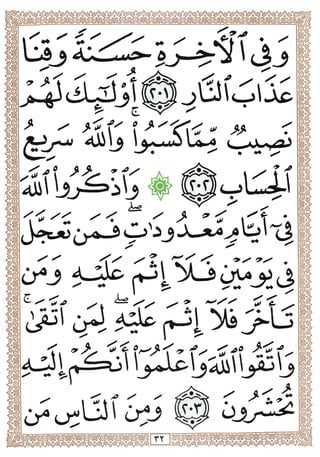 وَفِي ٱلْأٓخِرَةِ حَسَنَةٗ وَقِنَا
عَذَابَ ٱلنَّارِ ٢٠١ أُوْلَٰٓئِكَ لَهُمْ
نَصِيبٞ مِّمَّا كَسَبُواْۚ وَٱللَّهُ سَرِيعُ
ٱلْحِسَابِ ٢٠٢ ۞ وَٱذْكُرُواْ ٱللَّهَ
فِيٓ أَيَّامٖ مَّعْدُودَٰتٖۖ فَمَن تَعَجَّلَ
فِي يَوْمَيْنِ فَلَآ إِثْمَ عَلَيْهِ وَمَن
تَأَخَّرَ فَلَآ إِثْمَ عَلَيْهِۖ لِمَنِ ٱتَّقَىٰۗ
وَٱتَّقُواْ ٱللَّهَ وَٱعْلَمُوٓاْ أَنَّكُمْ إِلَيْهِ
تُحْشَرُونَ ٢٠٣ وَمِنَ ٱلنَّاسِ مَن
٣٢